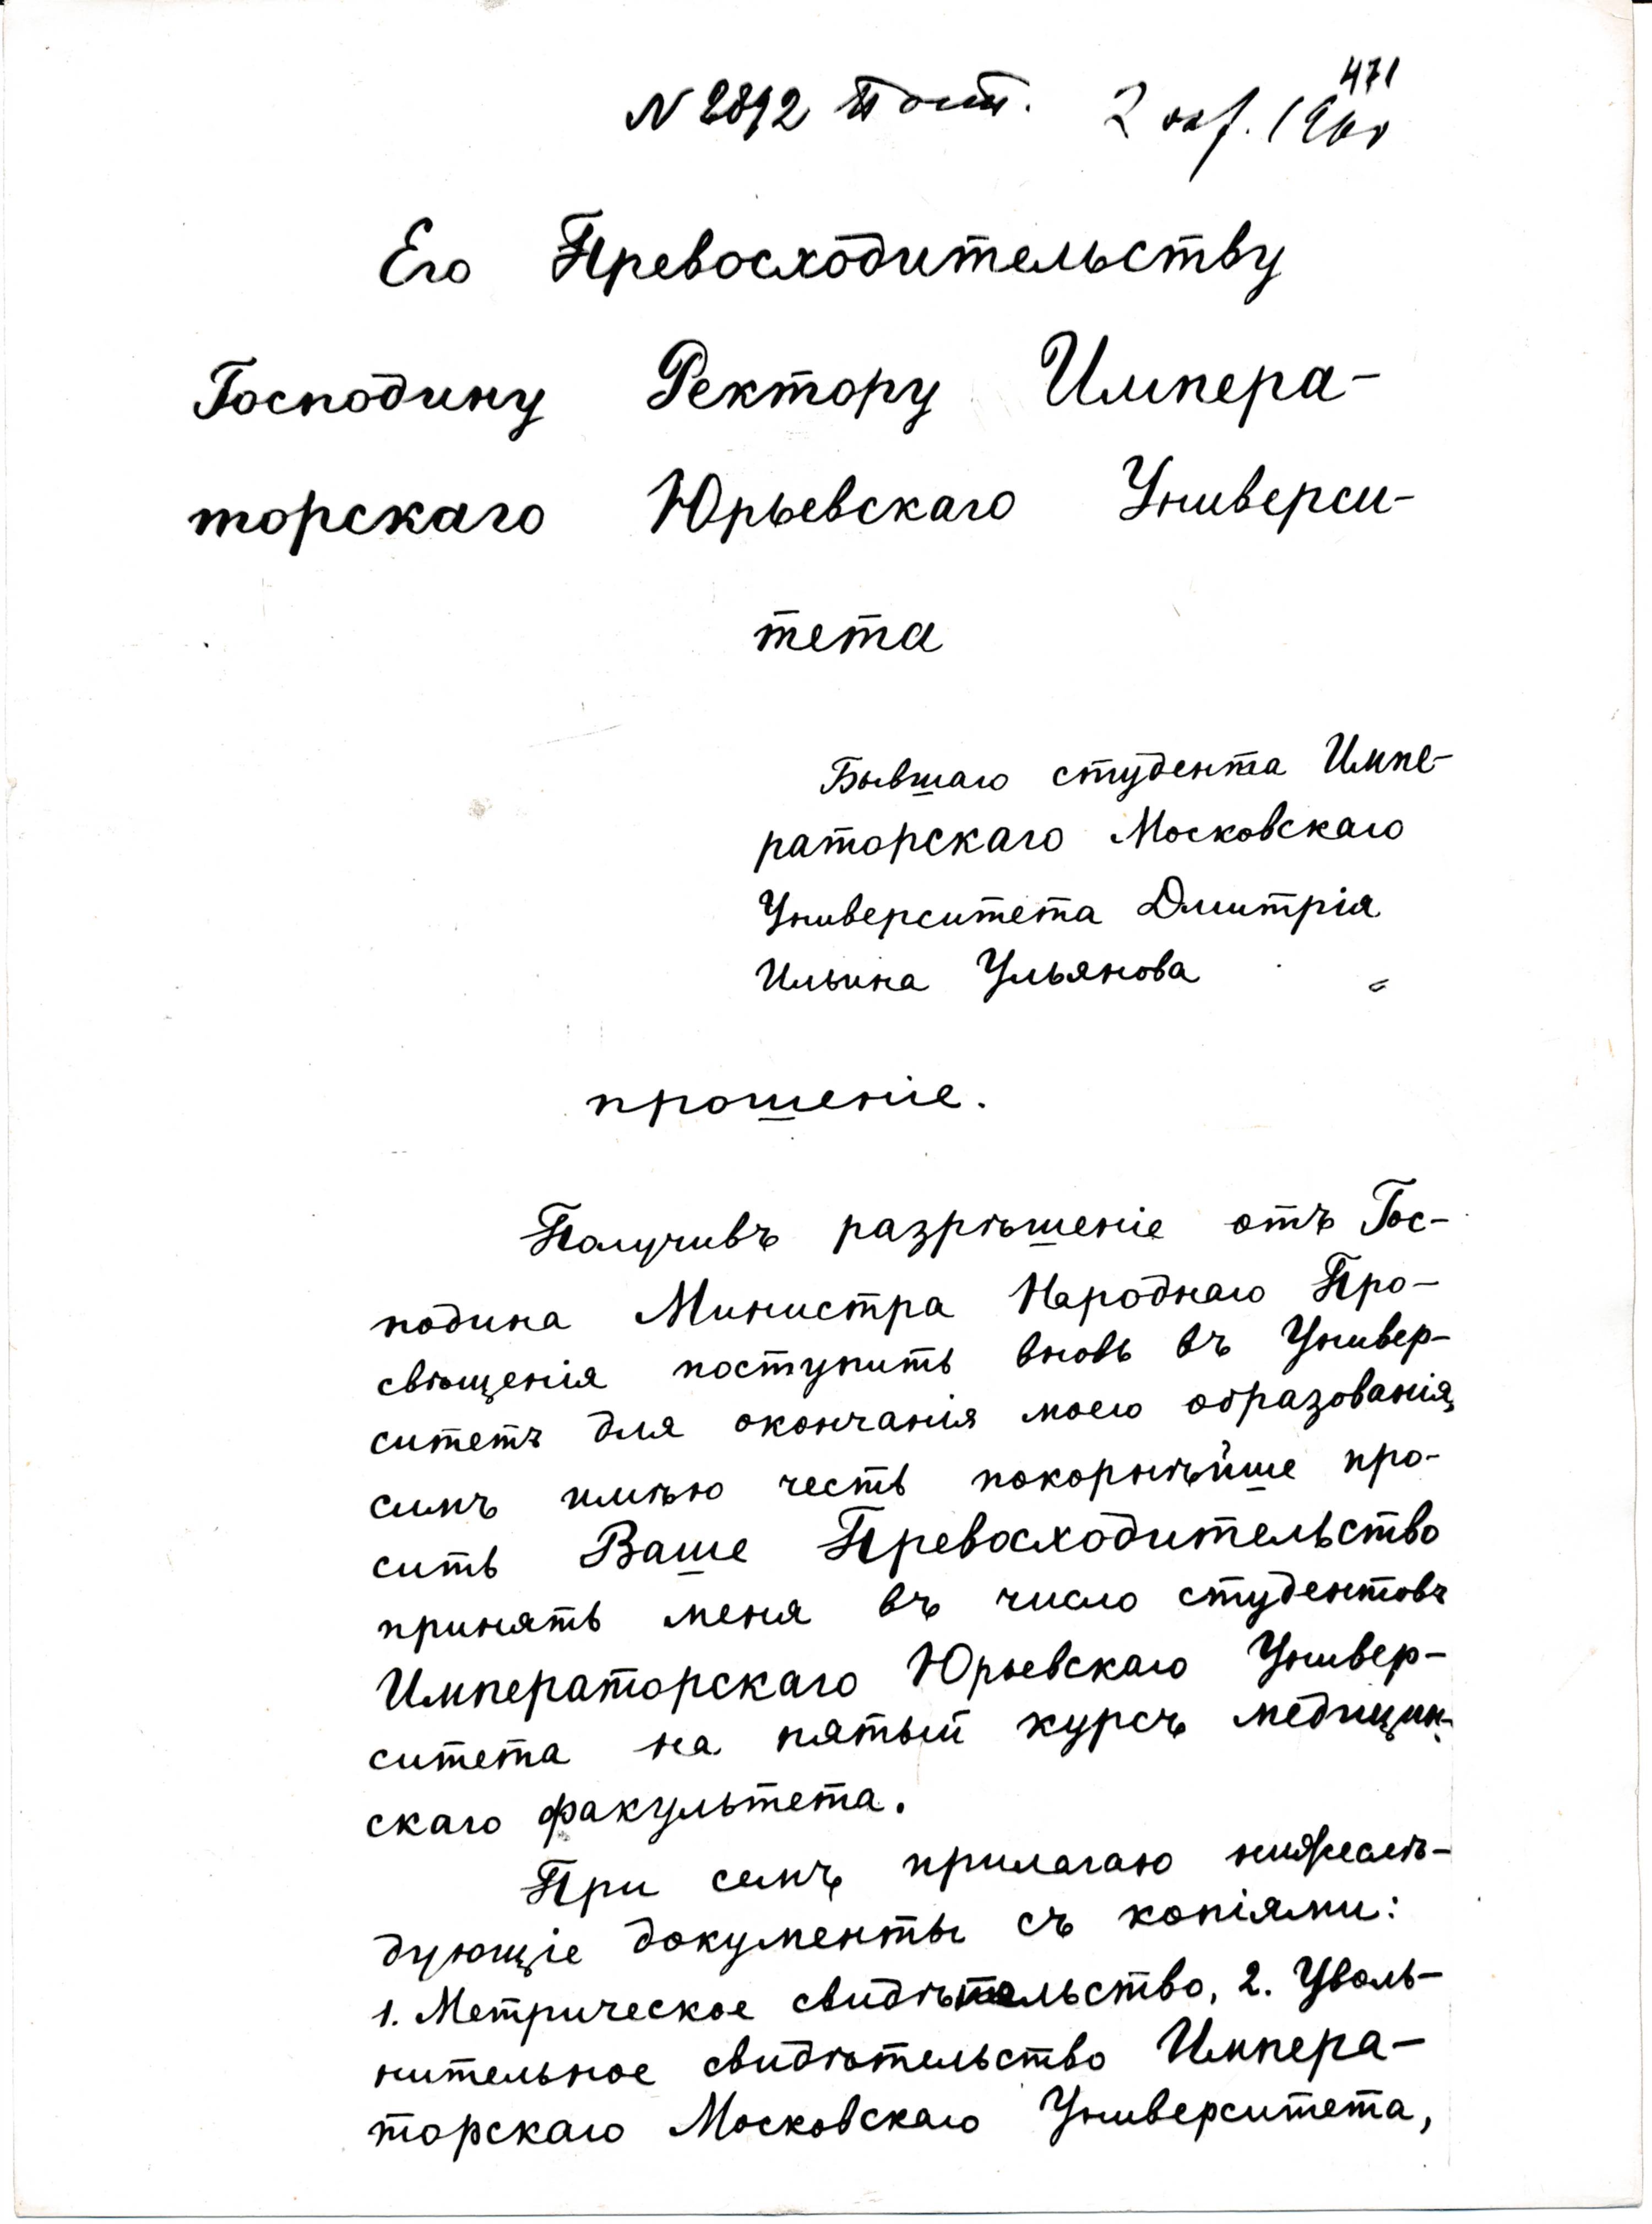 471
N 2892 Пост. 2 окт. 1900
Его Превосходительству
Господину Ректору Импера-
торскаго Юрьевскаго Универси-
тета
Бывшаго студента Импе-
раторскаго Московскаго
Университета Дмитрія
Ильина Ульянова
прошеніе.
Получивъ разрѣшеніе отъ Гос-
подина Министра Народнаго Про-
свѣщенія поступить вновь въ Универ-
ситетъ для окончанія моего образованія,
симъ имѣю честь покорнѣйше про-
сить Ваше Превосходительство
принять меня въ число студентовъ
Императорскаго Юрьевскаго Универ-
ситета на пятый курсъ медицин-
скаго факультета.
При семъ прилагаю нижеслѣ-
дующіе документы съ копіями:
1. Метрическое свидѣтельство, 2. Уволь-
нительное свидѣтельство Импера-
торскаго Московскаго Университета,